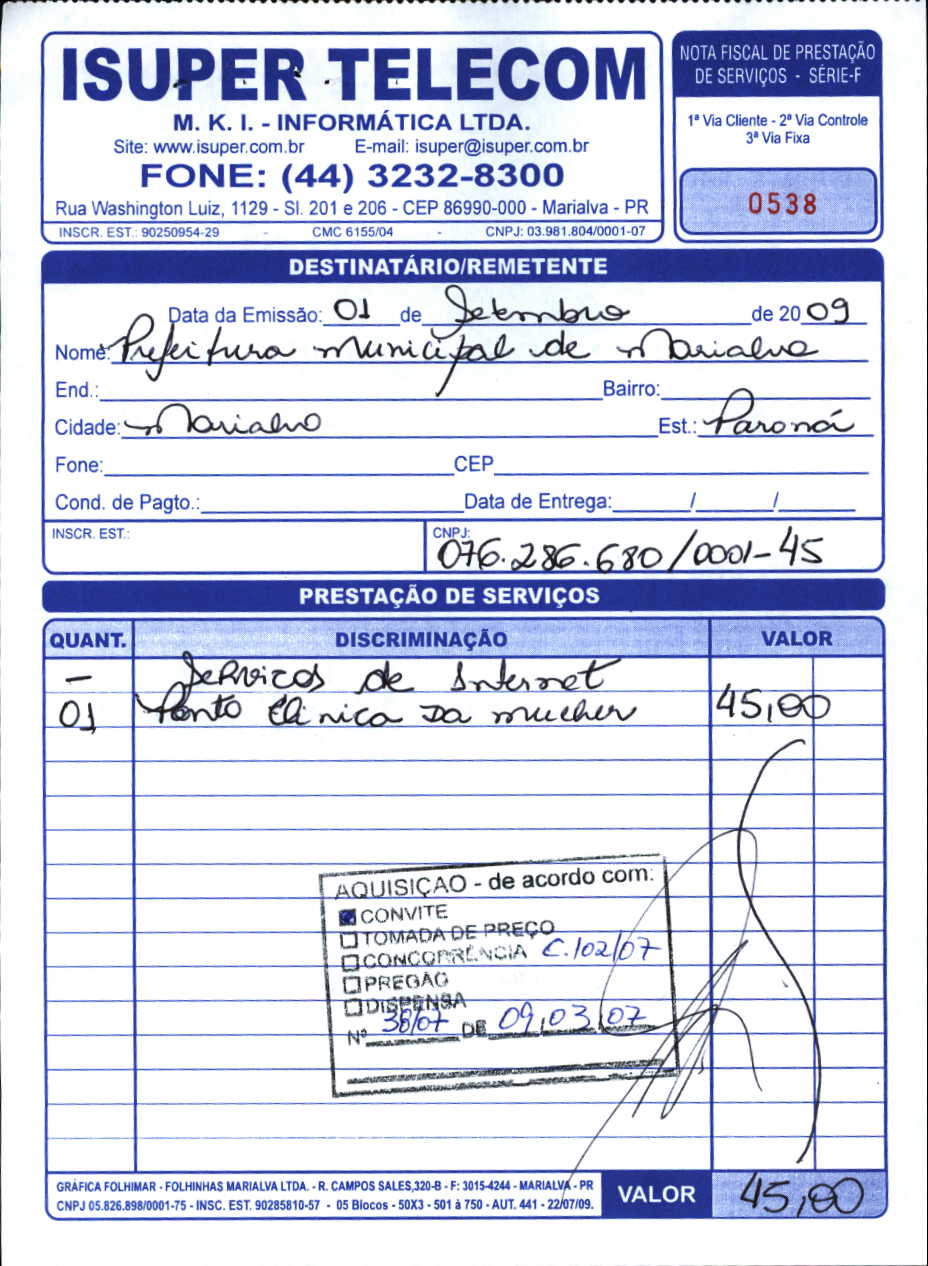 ISUPER TELECOM
M. K. I. - INFORMÁTICA LTDA.
Site: www.isuper.com.br E-mail: isuper@isuper.com.br
FONE: (44) 3232-8300
Rua Washington Luiz, 1129 - Sl. 201 e 206 - CEP 86990-000 - Marialva - PR
INSCR. EST.: 90250954-29 - CMC 6155/04 - CNPJ: 03.981.804/0001-07
NOTA FISCAL DE PRESTAÇÃO
DE SERVIÇOS - SÉRIE-F
1ª Via Cliente - 2ª Via Controle
3ª Via Fixa
0538
DESTINATÁRIO/REMETENTE
Data da Emissão: 01 de Setembro de 2009
Nome: Prefeitura Municipal de Marialva
End.: Bairro:
Cidade: Marialva Est.: Paraná
Fone: CEP
Cond. de Pagto.: Data de Entrega: / /
INSCR. EST.: CNPJ: 076.286.680/0001-45
PRESTAÇÃO DE SERVIÇOS
QUANT. DISCRIMINAÇÃO VALOR
- Servicos de Internet
01 Ponto Clinica Da mulher 45,00
AQUISIÇAO - de acordo com:
CONVITE
TOMADA DE PREÇO
CONCORRÊNCIA C.102/07
PREGÃO
DISPENSA
Nº 38/07 DE 09/03/07
GRÁFICA FOLHIMAR - FOLHINHAS MARIALVA LTDA. - R. CAMPOS SALES,320-B - F: 3015-4244 - MARIALVA - PR
CNPJ 05.826.898/0001-75 - INSC. EST. 90285810-57 - 05 Blocos - 50X3 - 501 à 750 - AUT. 441 - 22/07/09.
VALOR 45,00